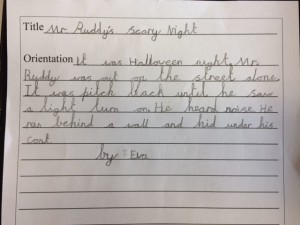 Title Mr Ruddy's Scary Night
Orientation It was Halloween night. Mr
Ruddy was out on the street alone.
It was pitch back until he saw
a light turn on. He heard noise. He
ran behind a wall and hid under his
coat.
by Eva